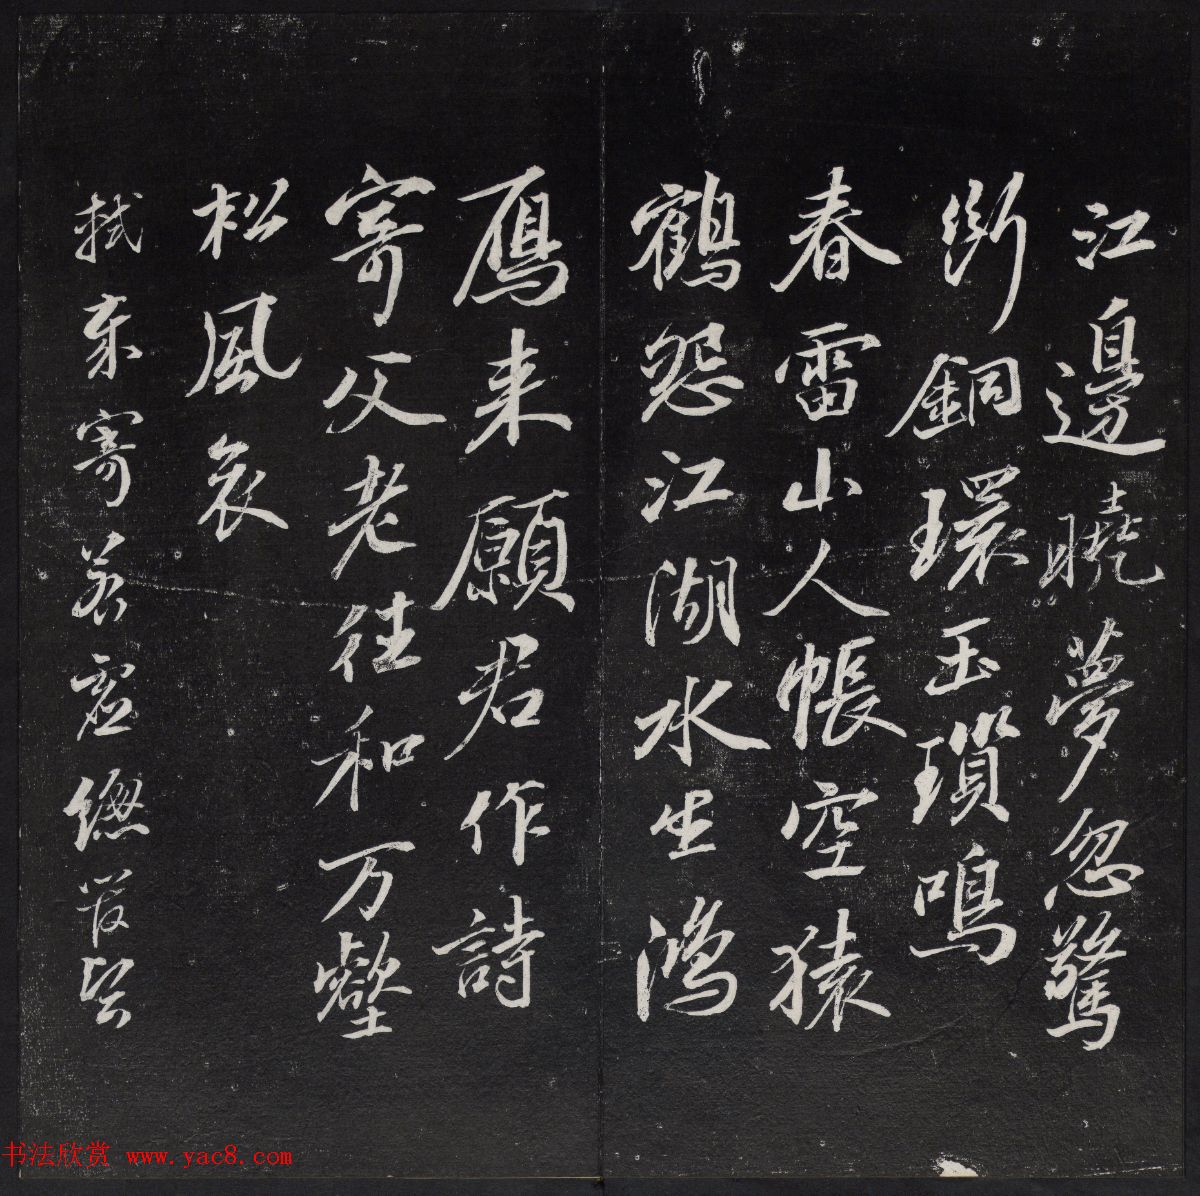 江邊曉夢忽驚
断銅環玉瑣鳴
春雷山人帳空猿
鶴怨江湖水生鴻
鴈来願君作詩
寄父老往和万壑
松風哀
軾柬寄若虛總管
书法欣赏 www.yac8.com